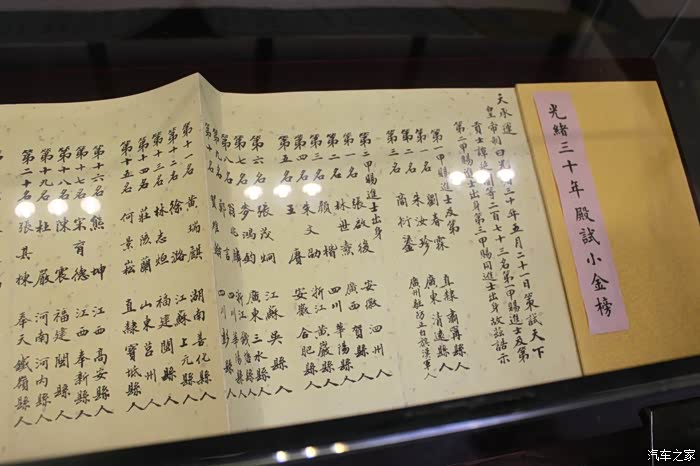 光緒三十年殿試小金榜
天承運
皇帝制曰光緒三十年五月二十一日策試天下
貢士譚延闓等二百七十三名第一甲賜進士及第
第二甲賜進士出身第三甲賜同進士出身故茲誥示
第一甲賜進士及第
第一名 劉春霖 直隸 肅寧縣人
第二名 朱汝珍 廣東 清遠縣人
第三名 商衍鎏 廣州駐防正白旗漢軍人
第二甲賜進士出身
第一名 張啟後 安徽 泗州人
第二名 林世燾 廣西 賀縣人
第三名 顏楷 四川 華陽縣人
第四名 朱文劭 浙江 黃巖縣人
第五名 王賡 安徽 合肥縣人
第六名 張茂炯 江蘇 吳縣人
第七名 麥鴻鈞 廣東 三水縣人
第八名
第九名
第十名 四川 彭縣人
第十一名 黃瑞麒 湖南 善化縣人
第十二名 徐潞 江蘇 上元縣人
第十三名 林志烜 福建 閩縣人
第十四名 莊陔蘭 山東 莒州人
第十五名 何景崧 直隸 寶坻縣人
第十六名 熊坤 江西 高安縣人
第十七名 宋育德 江西 奉新縣人
第十八名 陳震 福建 閩縣人
第十九名 杜嚴 河南 河內縣人
第二十名 張其棟 奉天 鐵嶺縣人
汽车之家